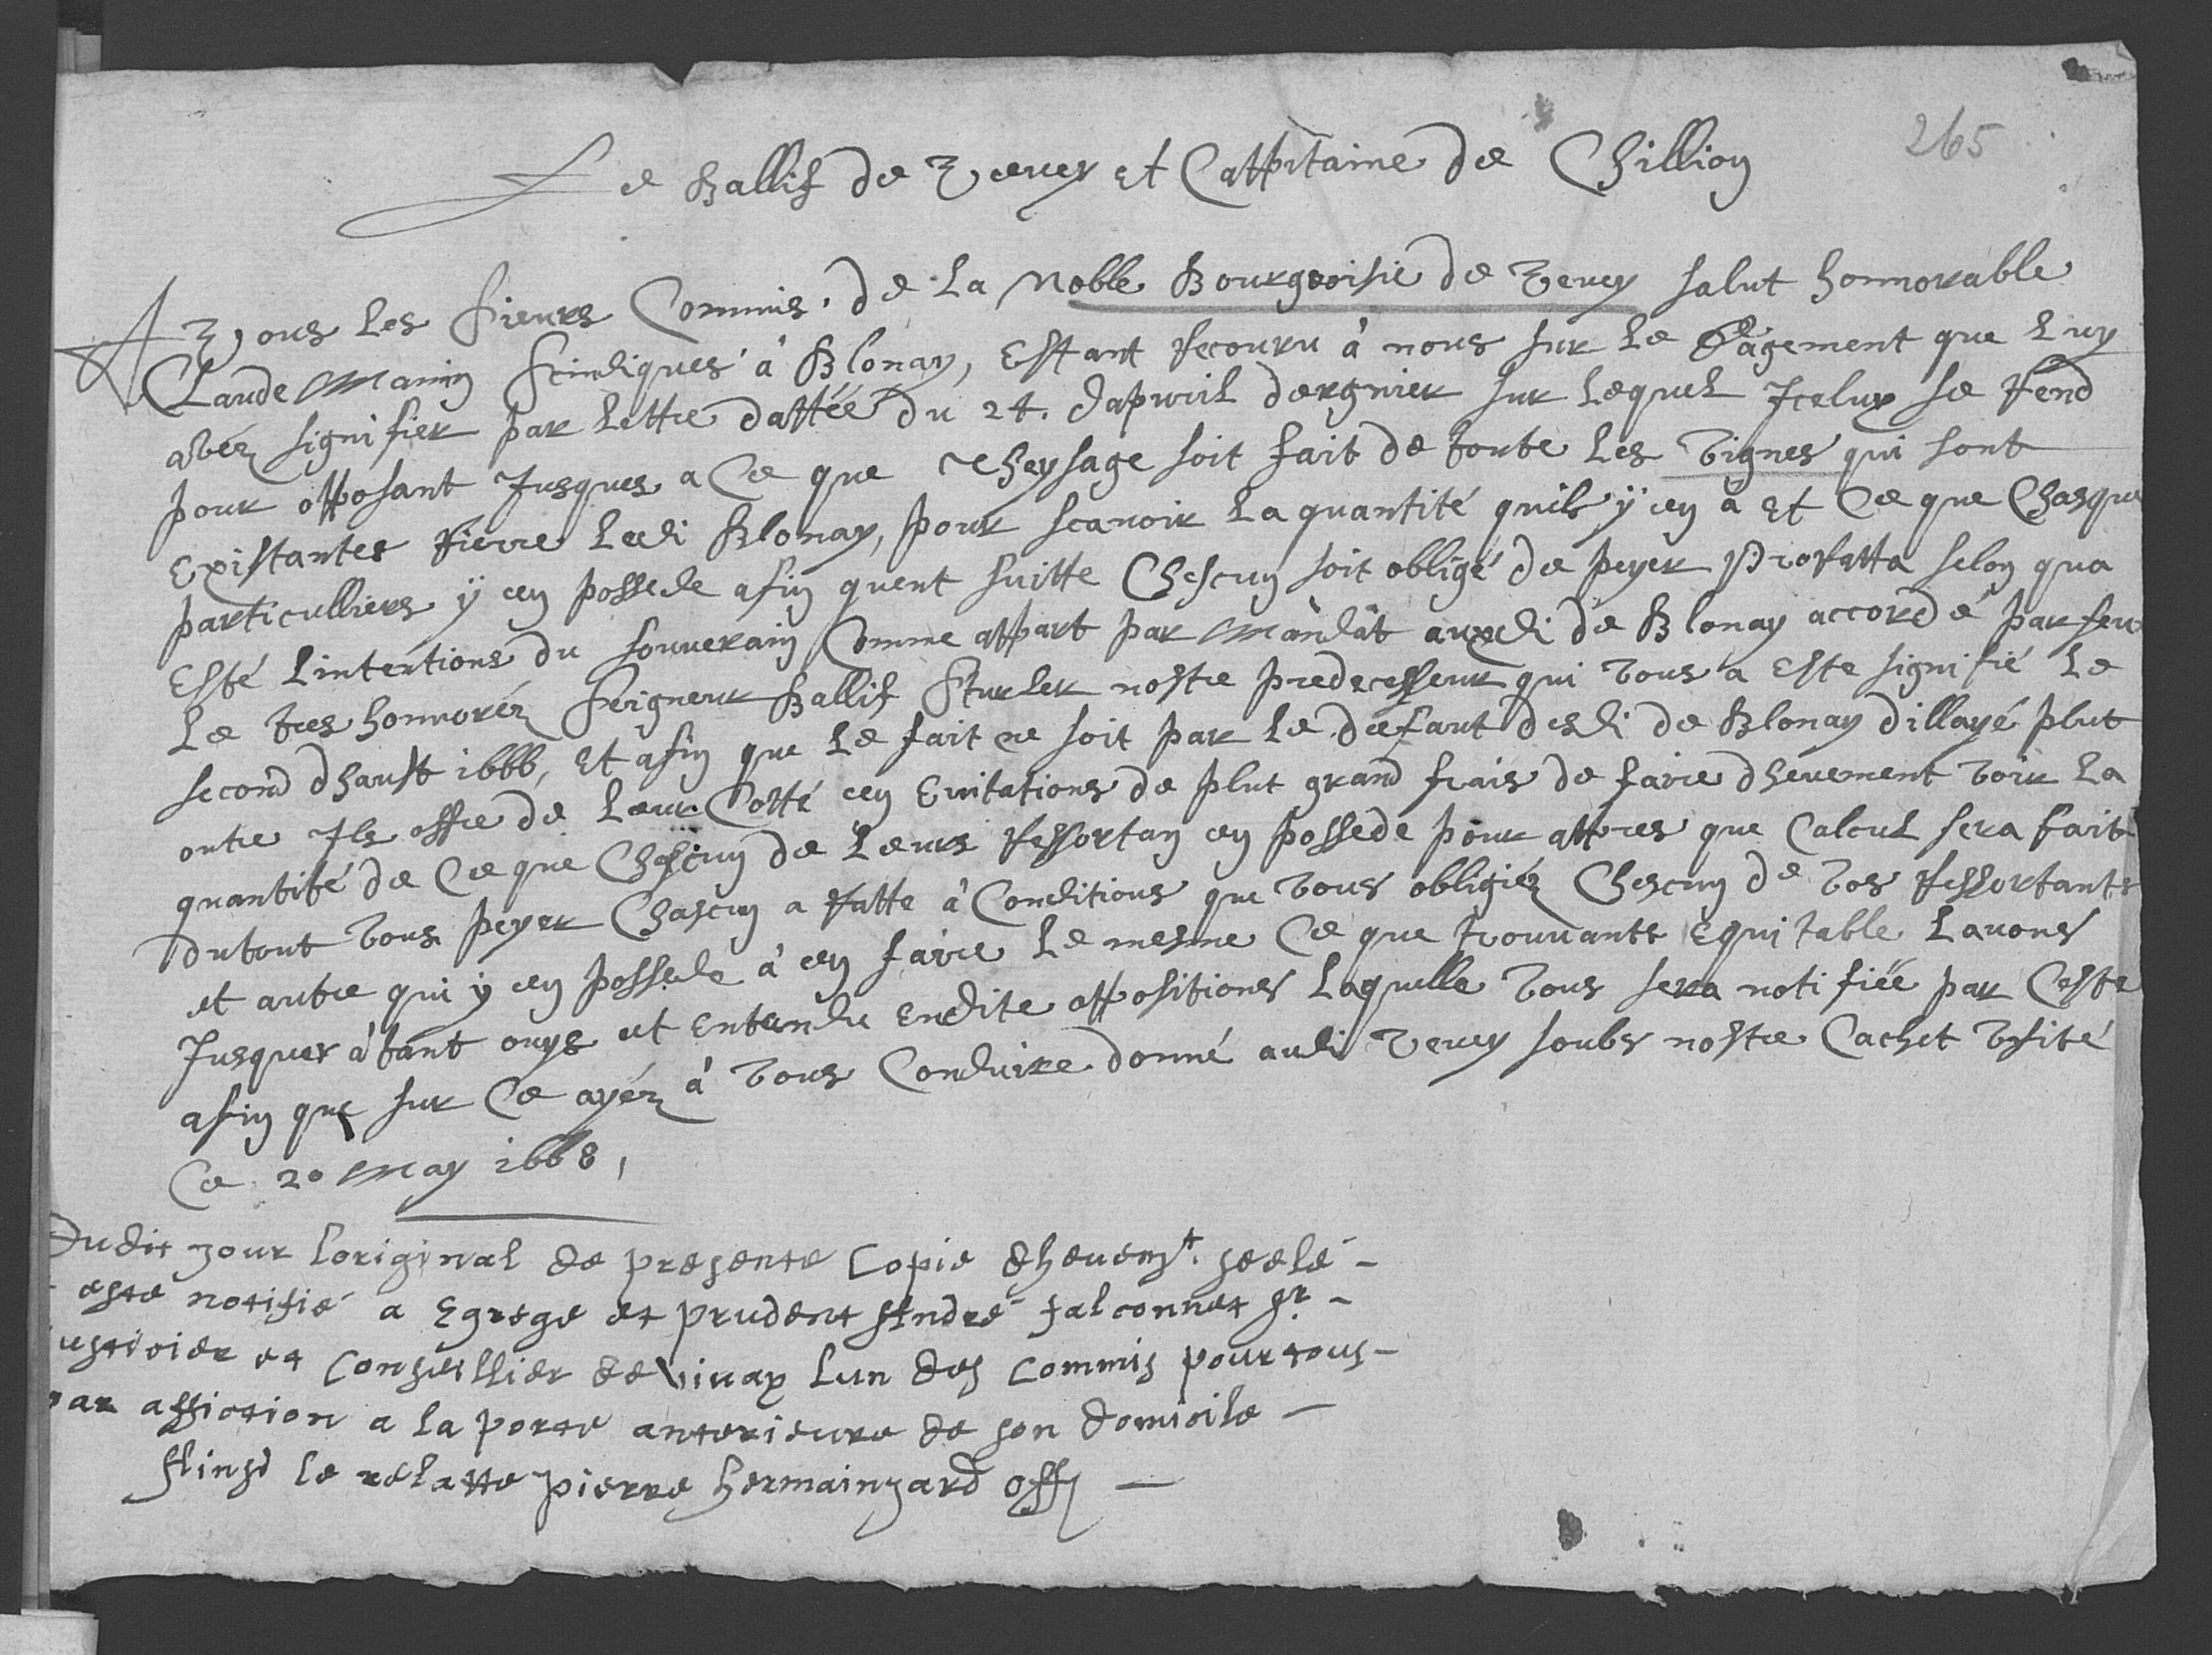 265
Le Ballif de Vevey et Cappitaine de Chillion
A Vous les sieurs Commis de la Noble Bourgeoisie de Vevey salut honnorable
Claude Mamin scindiques à Blonay, Estant recouru à nous sur le Gagement que luy
avéz signifier par lettre dattée du 24. dapvril dergnier sur lequel Icelux se rend
pour opposant Jusques a Ce que Theysage soit fait de toute les Vignes qui sont
Existantes rierre ledi Blonay, pour scavoir la quantité quils ÿ en a et Ce que Chasque
particulliers ÿ en possede afin quent suitte Chescun soit obligé de peyer Proratta selon qua
Esté lintentions du souverain Comme appart par Mandat auxdi de Blonay accordé par feu
Le tres honnoréz seigneur Ballif Sturler nostre predecesseur qui vous a Esté signifié le
second dhaust 1666, Et afin que le fait ne soit par le defaut desdi de Blonay dillayé plut
outre Ils offre de leur Cotté en Evitations de plut grand frais de faire dhevement voir la
quantité de Ce que Chescun de leurs ressortan en possede pour appres que Calcul sera fait
dutout vous peyer Chascun a ratte à Conditions que vous obligiéz Chescun de vos ressortants
et autre qui ÿ en possede à en faire le mesme Ce que trouvants Equitable lavons
Jusques à tant ouys et Entendu Endite oppositions laquelle vous sera notifiée par Ceste
afin que sur Ce ayéz à vous Conduire donné audi Vevey soubs nostre Cachet Usité
Ce 20 May 1668,
Dudit jour loriginal de presente Copie dhevemt. seelé -
esté notifié a Egrege et prudent André falconnet sr. -
ustivier et Conseillier de Vivay lun des Commis pour tous -
par affiction a la porte anterieure de son domicile -
Ainsi le relatte pierre hermainjard offi -